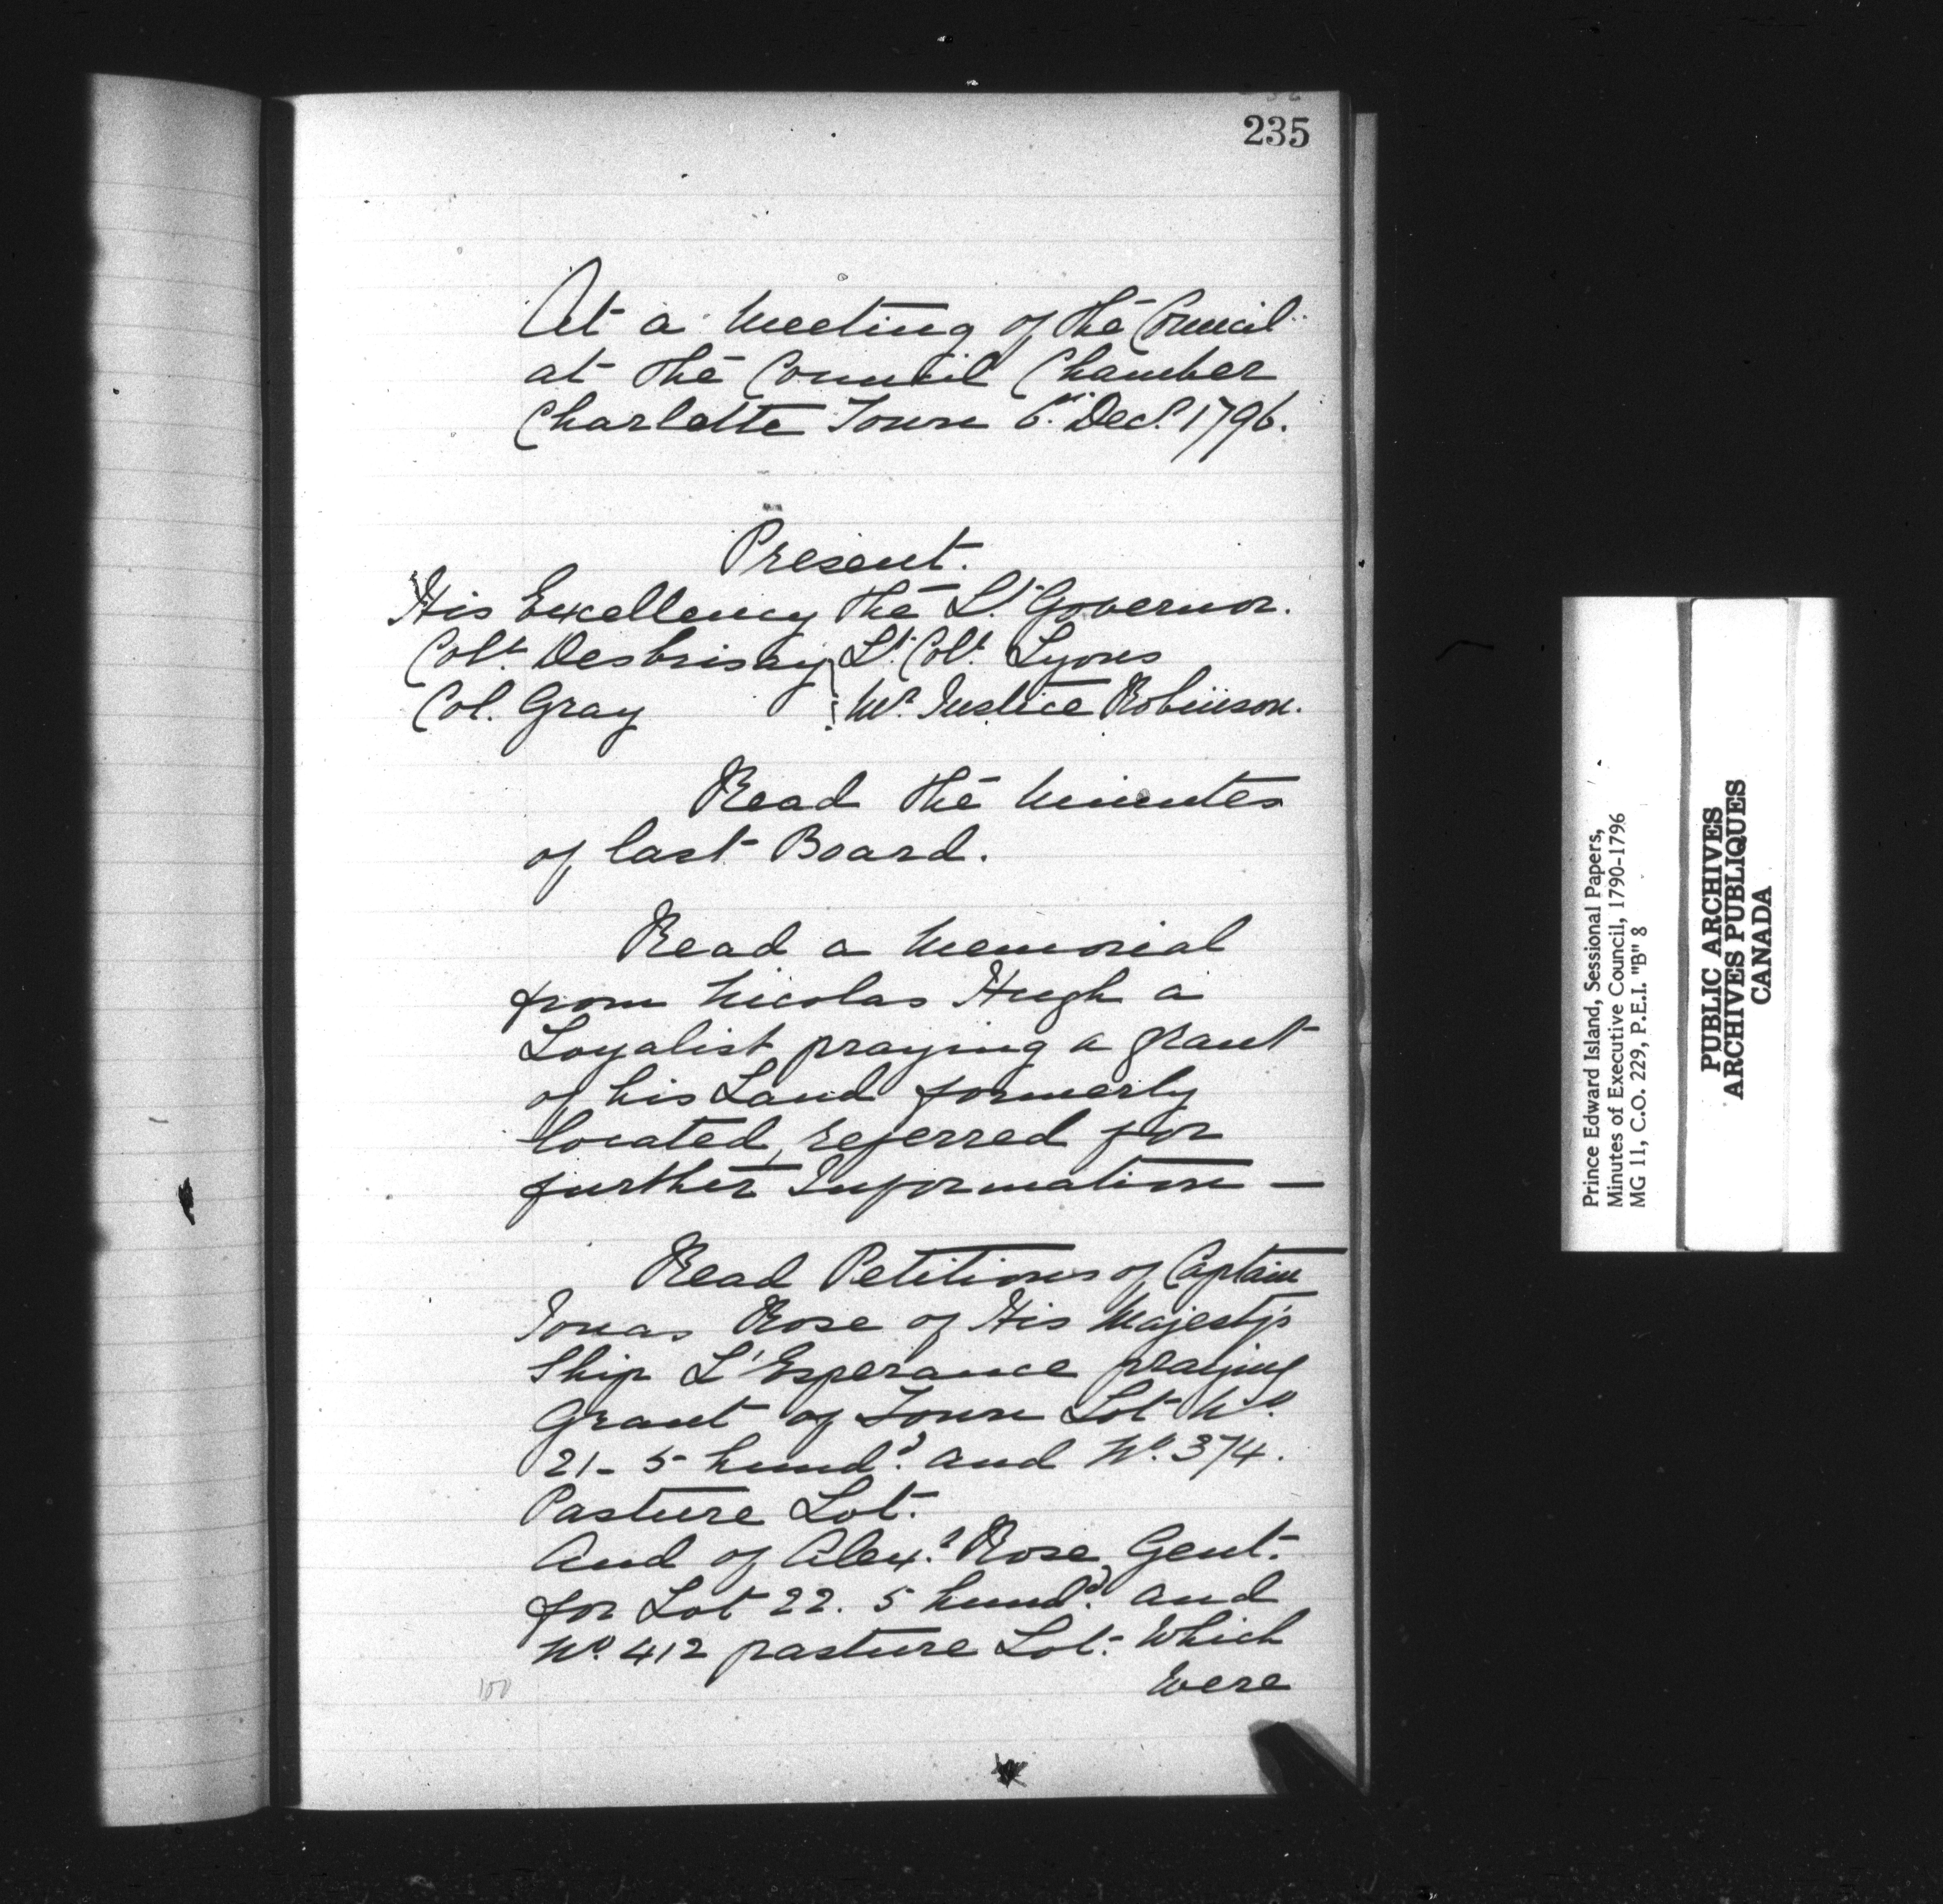 235
At a Meeting of the Council
at the Council Chamber
Charlotte Town 6th Decr. 1796.
Present.
His Excellency the Lt. Governor.
Colt. Desbrisay Lt. Colt. Lyons
Col. Gray Mr. Justice Robinson.
Read the Minutes
of last Board.
Read a Memorial
from Nicolas Hugh a
Loyalist praying a grant
of his Land formerly
located, referred for
further Information —
Read Petitions of Captain
Jonas Rose of His Majesty's
Ship L'Esperance praying
Grant of Town Lot No.
21 - 5 hundd. and No. 374.
Pasture Lot.
And of Alexr. Rose, Gent.
for Lot 22. 5 hundd. and
No. 412 pasture Lot. Which
were
100
Prince Edward Island, Sessional Papers,
Minutes of Executive Council, 1790-1796
MG 11, C.O. 229, P.E.I. "B" 8
PUBLIC ARCHIVES
ARCHIVES PUBLIQUES
CANADA